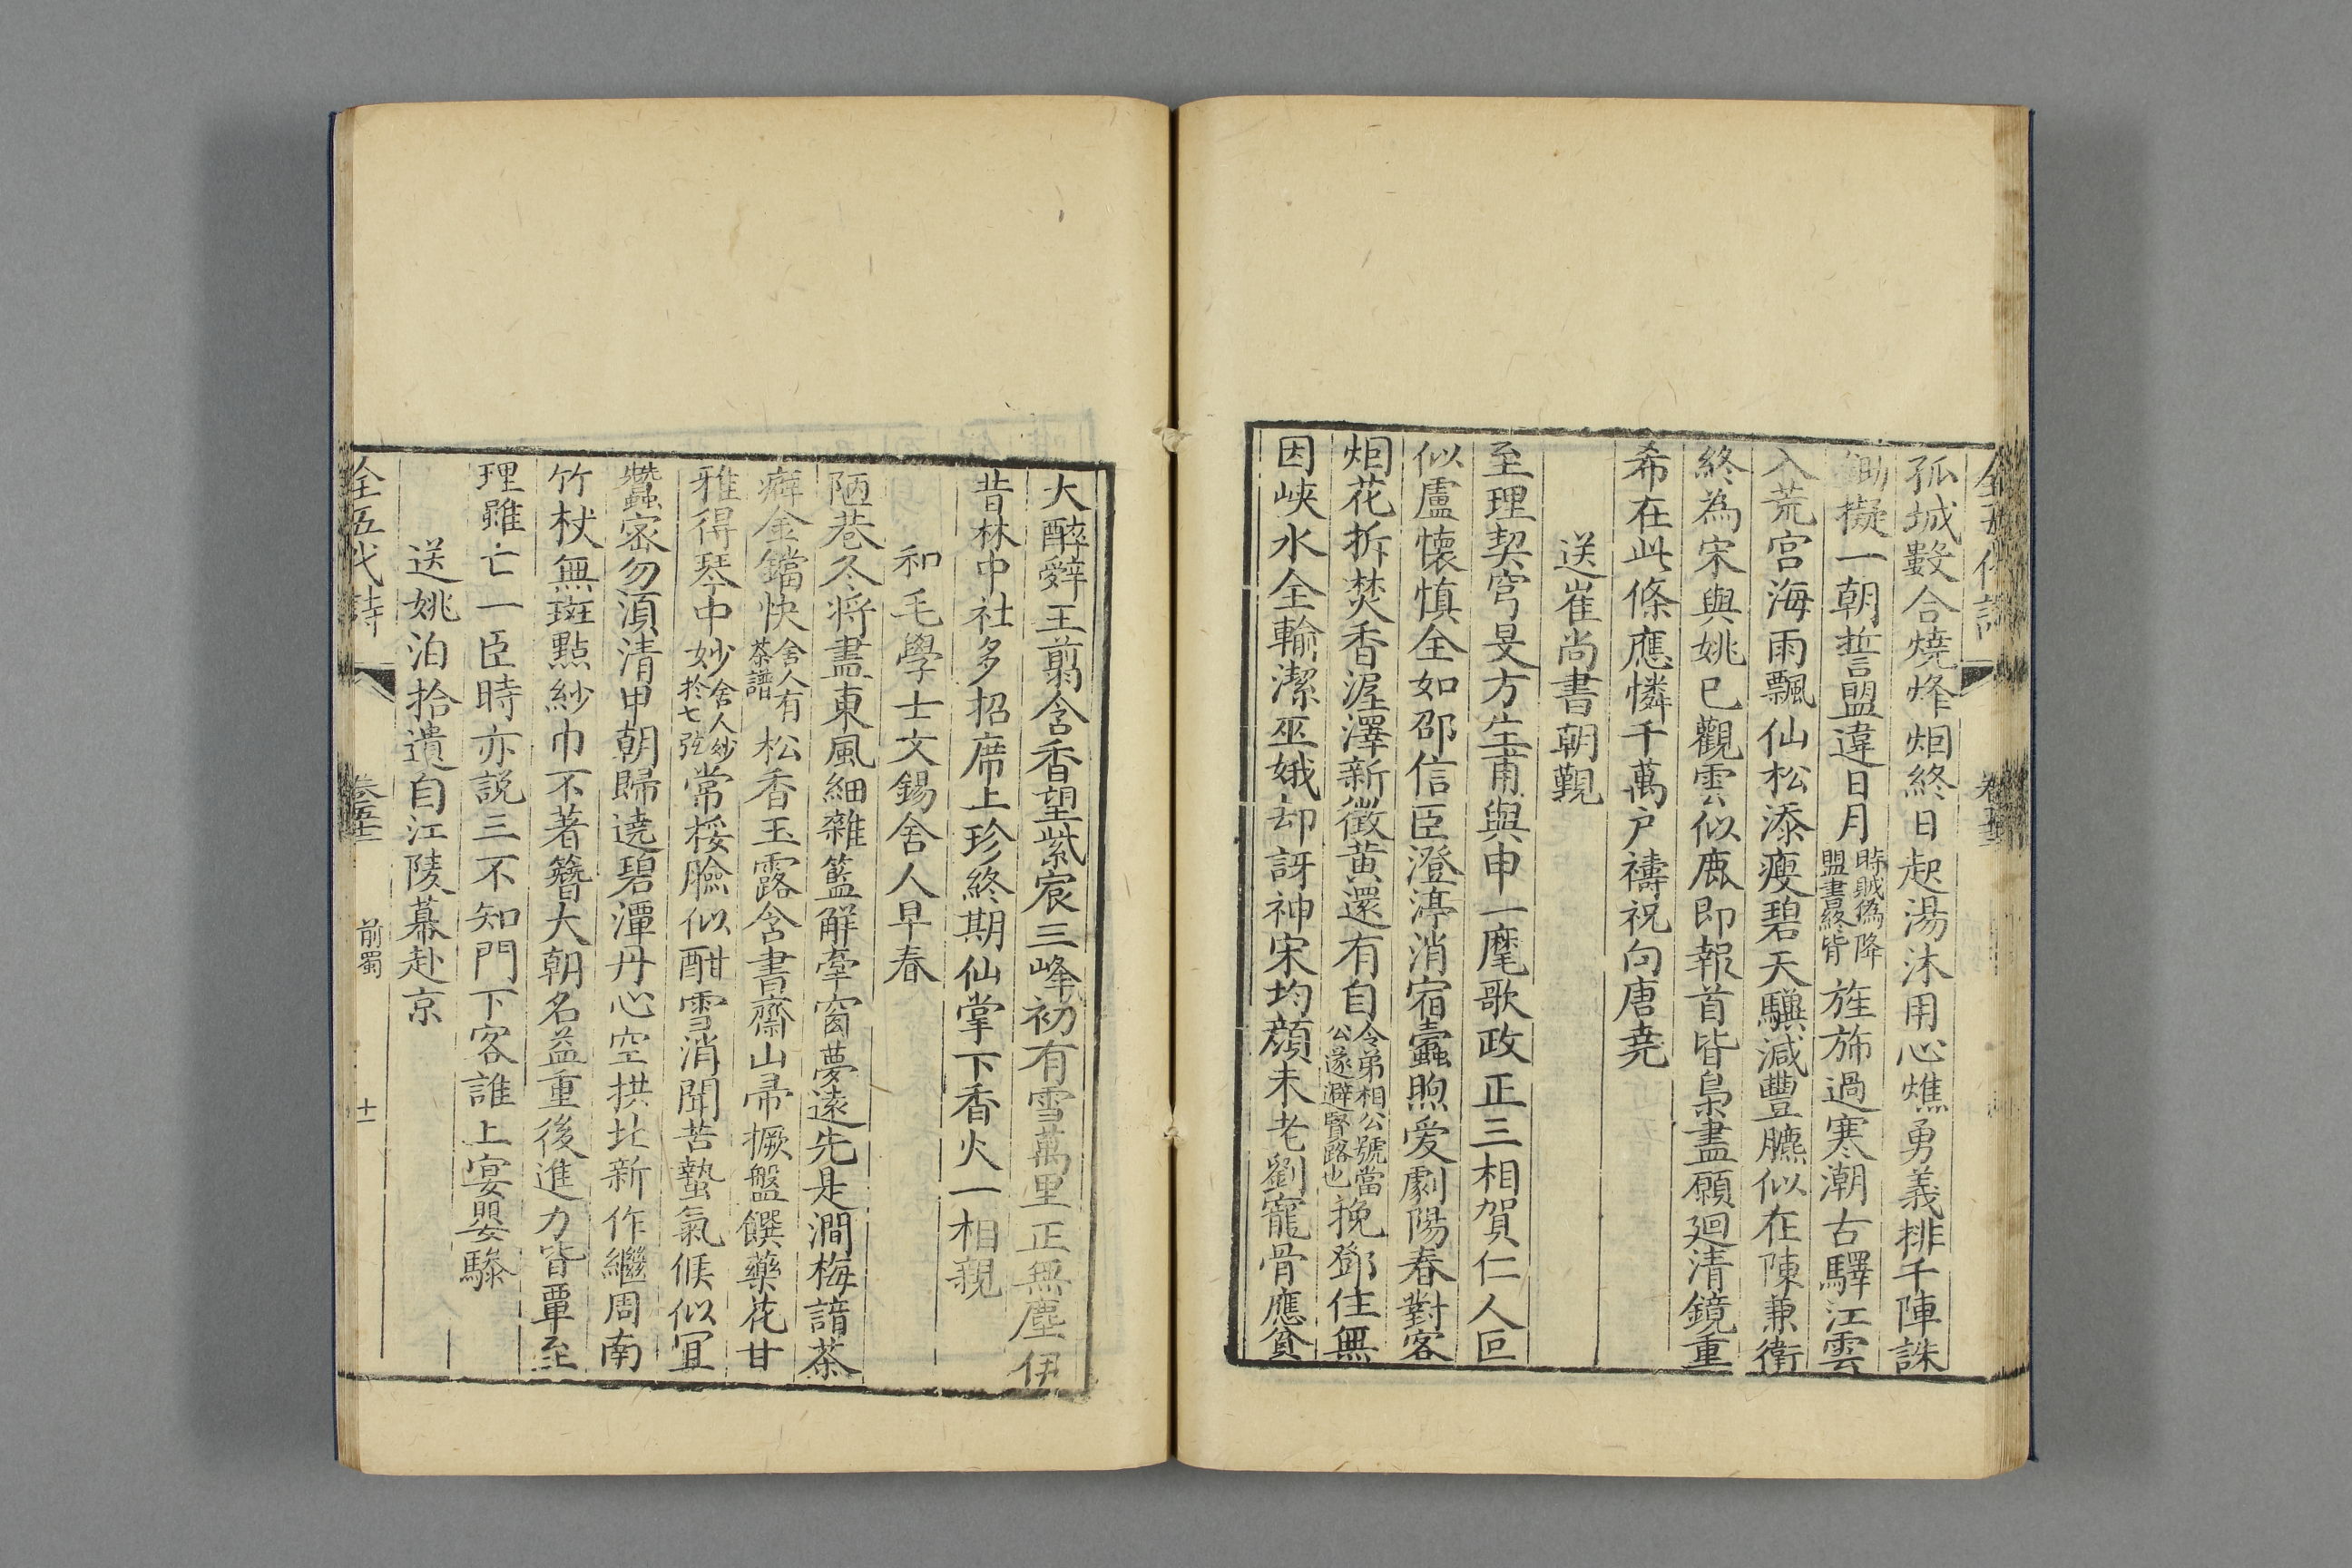 孤城數合燒烽炬終日起湯沐用心燋勇義排千陣誅
鋤擬一朝誓盟違日月時賊偽降盟書終皆旌旆過寒潮古驛江雲
入荒宮海雨飄仙松添瘦碧天驥減豐臕似在陳兼衛
終為宋與姚已觀雲似鹿即報首皆梟盡願迴清鏡重
希在此條應憐千萬戶禱祝向唐堯
送崔尚書朝覲
至理契穹旻方生甫與申一麾歌政正三相賀仁人叵
似盧懷慎全如邵信臣澄渟消宿蠹煦愛劇陽春對客
炬花拆焚香渥澤新徵黃還有自令弟相公號當公遂避賢路也挽鄧住無
因峽水全輸潔巫娥却訝神宋均顏未老劉寵骨應貧
大醉辭王翦含香望紫宸三峰初有雪萬里正無塵伊
昔林中社多招席上珍終期仙掌下香火一相親
和毛學士文錫舍人早春
陋巷冬將盡東風細雜籃解牽窗夢遠先是澗梅諳茶
癖金鐺快舍人有茶譜松香玉露含書齋山帚撅盤饌藥花甘
雅得琴中妙舍人妙於七弦常挼臉似酣雪消聞苦蟄氣候似宜
蠶密勿須清甲朝歸遶碧潭丹心空拱北新作繼周南
竹杖無斑點紗巾不著簪大朝名益重後進力皆覃至
理雖亡一臣時亦説三不知門下客誰上宴嬰驂
送姚洎拾遺自江陵幕赴京
全五代詩
前蜀
十一